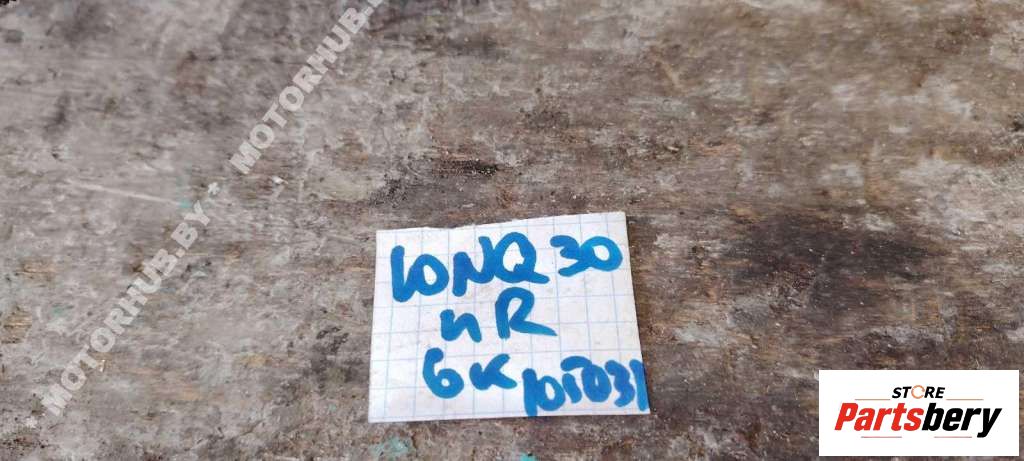 MOTORHUB.BY · MOTORHUB.BY
10NQ30
чR
6к 101031
STORE
Partsbery